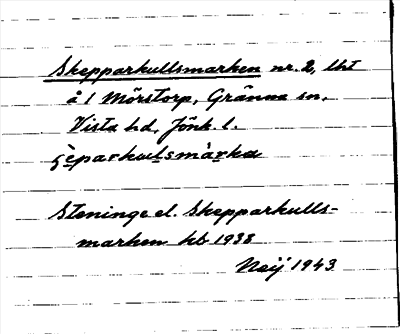 Skepparkullsmarken nr. 2, lht
å 1 Mörstorp, Gränna sn,
Vista hd, Jönk. l.
ʂèparkulsmàrka
Steninge el. Skepparkulls-
marken kb 1938
Neij 1943